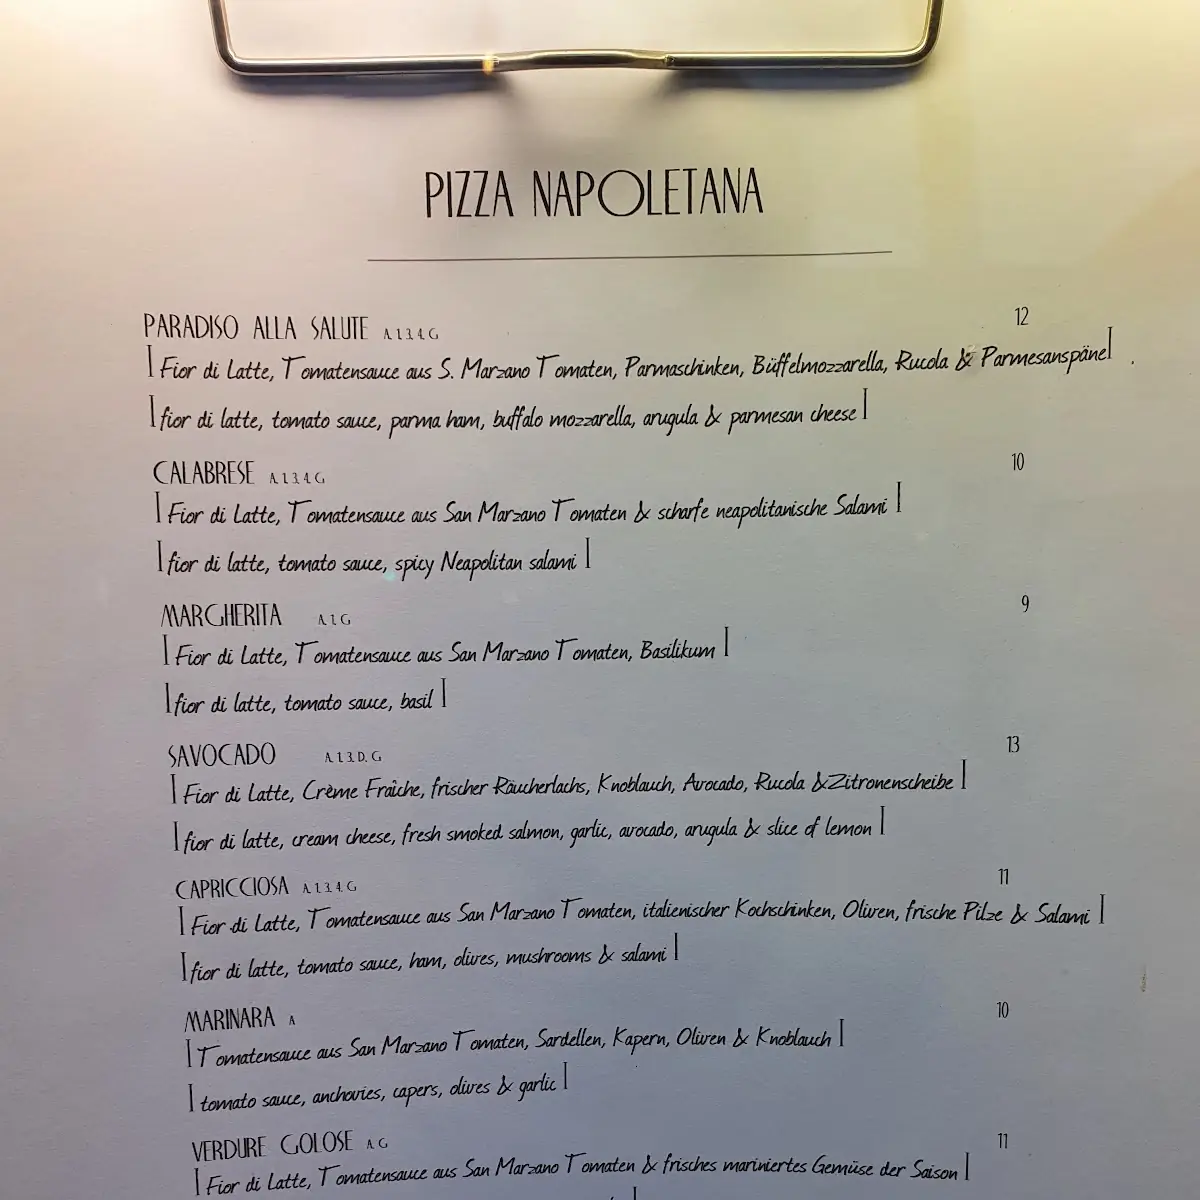 PIZZA NAPOLETANA
PARADISO ALLA SALUTE A,1,3,4,G 12
| Fior di Latte, Tomatensauce aus S. Marzano Tomaten, Parmaschinken, Büffelmozzarella, Rucola & Parmesanspäne|
| fior di latte, tomato sauce, parma ham, buffalo mozzarella, arugula & parmesan cheese |
CALABRESE A,1,3,4,G 10
| Fior di Latte, Tomatensauce aus San Marzano Tomaten & scharfe neapolitanische Salami |
| fior di latte, tomato sauce, spicy Neapolitan salami |
MARGHERITA A,1,G 9
| Fior di Latte, Tomatensauce aus San Marzano Tomaten, Basilikum |
| fior di latte, tomato sauce, basil |
SAVOCADO A,1,3,D,G 13
| Fior di Latte, Crème Fraîche, frischer Räucherlachs, Knoblauch, Avocado, Rucola &Zitronenscheibe |
| fior di latte, cream cheese, fresh smoked salmon, garlic, avocado, arugula & slice of lemon |
CAPRICCIOSA A,1,3,4,G 11
| Fior di Latte, Tomatensauce aus San Marzano Tomaten, italienischer Kochschinken, Oliven, frische Pilze & Salami |
| fior di latte, tomato sauce, ham, olives, mushrooms & salami |
MARINARA A 10
| Tomatensauce aus San Marzano Tomaten, Sardellen, Kapern, Oliven & Knoblauch |
| tomato sauce, anchovies, capers, olives & garlic |
VERDURE GOLOSE A,G 11
| Fior di Latte, Tomatensauce aus San Marzano Tomaten & frisches mariniertes Gemüse der Saison |